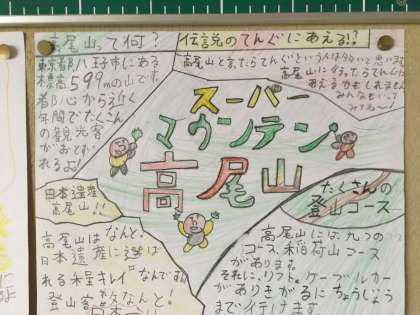 高尾山って何?
東京都八王子市にある
標高599mの山です。
都心から近く
年間でたくさん
の観光客
がおとず
れるよ!
伝説のてんぐにあえる!?
高尾山と言ったらてんぐというんはないと思います
高尾山に行ったらてんぐに
あえるかもしれません
みんなもいこ?
みてね〜!
スーパー
マウンテン
高尾山
日本遺産
高尾山!!
高尾山はなんと!
日本遺産に選ば
れる程キレイなんです!!
登山客数なんと!
たくさんの
登山コース
高尾山には九つの
コース、稲荷山コース
があります。
それに、リフト、ケーブルカー
がありきがるにちょうじょう
まで行けます。